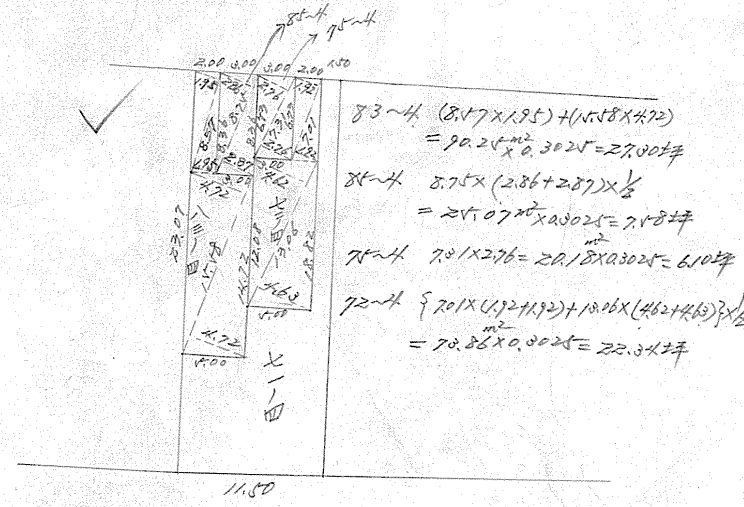 85~4
75~4
2.00 3.00 3.00 2.00 1.50
1.95 2.86 2.76 1.92
8.57 8.36 8.75 8.36 6.73 7.31 6.73 7.01
1.95 2.87 2.76 1.92
3.00 3.00
4.72 4.62
23.07
八三-四
15.58
14.72
12.08
七二-四
13.06
15.82
4.63
5.00
4.72
5.00
七二-四
11.50
83~4 (8.57×1.95)+(15.58×4.72)
=90.25m²×0.3025=27.30坪
85~4 8.75×(2.86+2.87)×½
=25.07m²×0.3025=7.58坪
75~4 7.31×2.76=20.18m²×0.3025=6.10坪
72~4 {7.01×(1.92+1.92)+13.06×(4.62+4.63)}×½
=73.86m²×0.3025=22.34坪